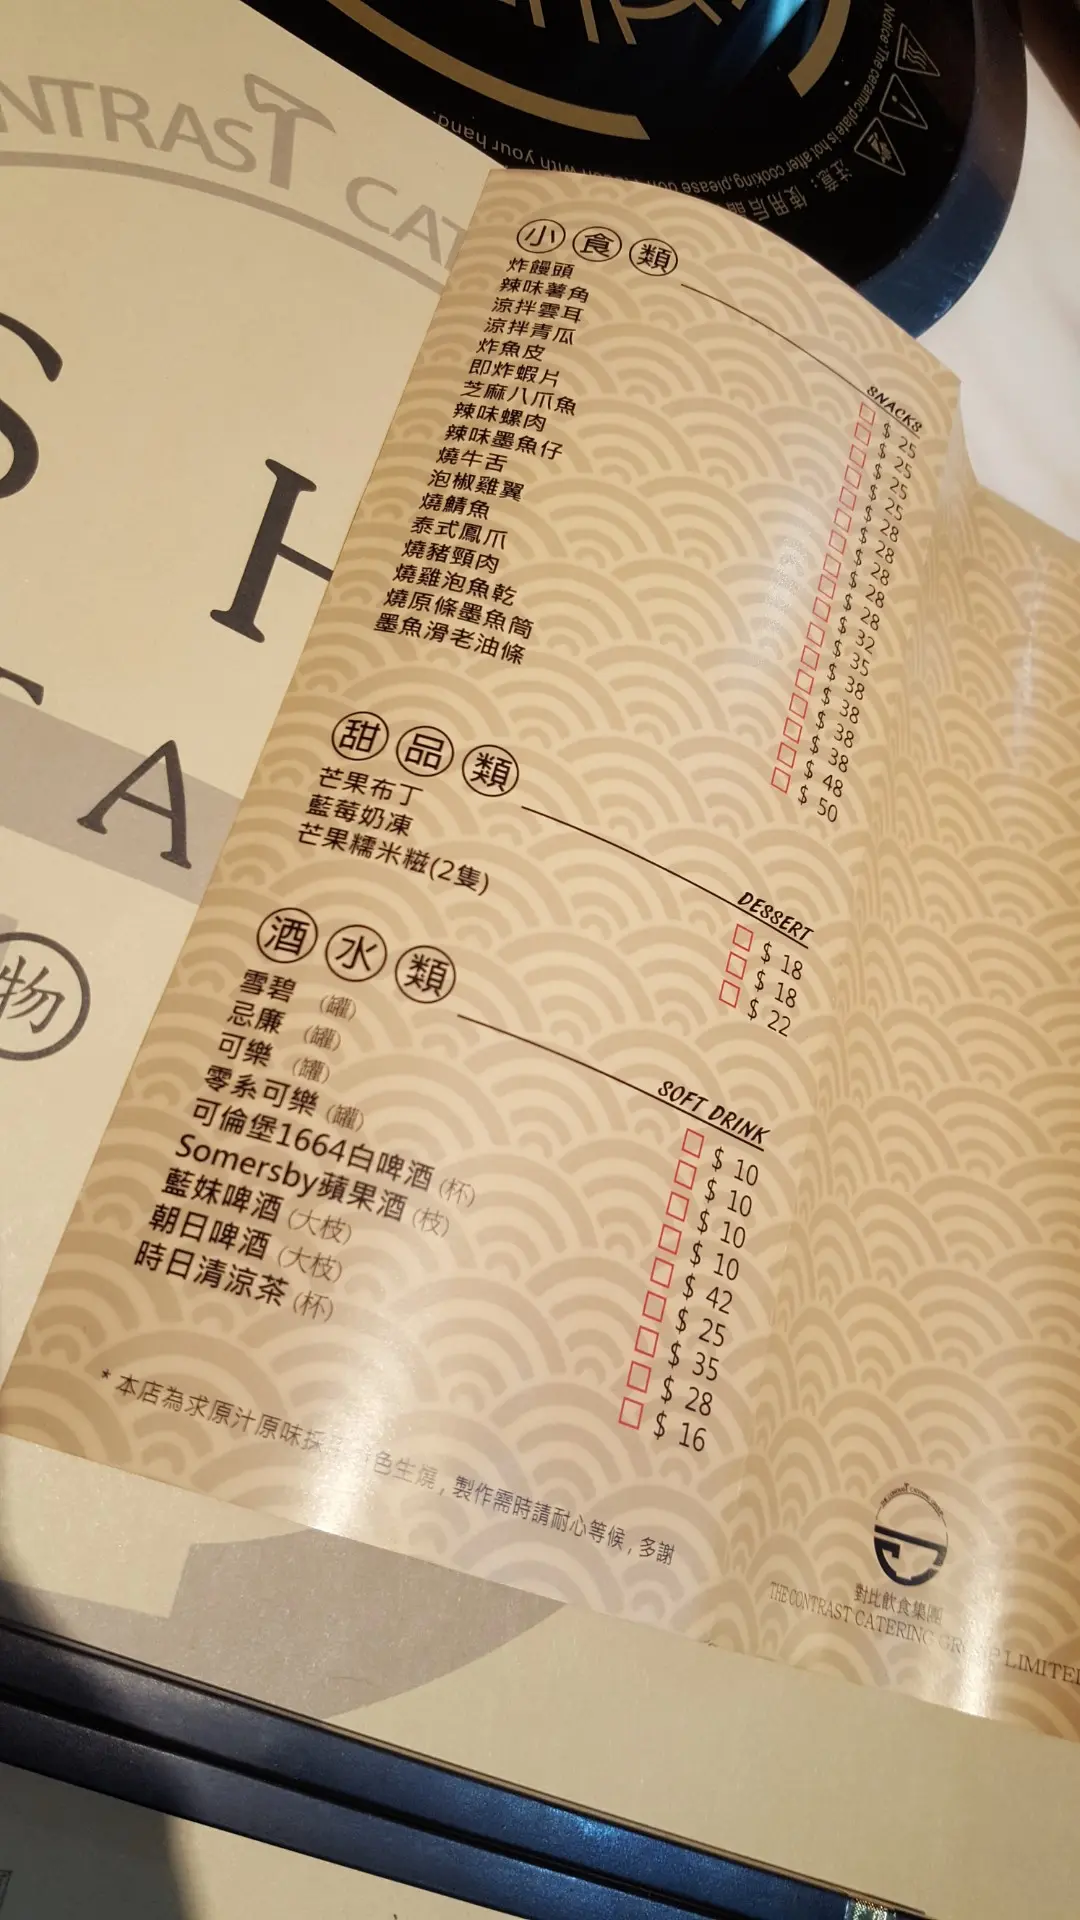 CONTRAST CAT
S
H
A
物
Notice:The ceramic plate is hot after cooking,please don
with your hand.
注意：使用后
小食類
SNACKS
炸饅頭 $ 25
辣味薯角 $ 25
涼拌雲耳 $ 25
涼拌青瓜 $ 25
炸魚皮 $ 28
即炸蝦片 $ 28
芝麻八爪魚 $ 28
辣味螺肉 $ 28
辣味墨魚仔 $ 28
燒牛舌 $ 32
泡椒雞翼 $ 35
燒鯖魚 $ 38
泰式鳳爪 $ 38
燒豬頸肉 $ 38
燒雞泡魚乾 $ 38
燒原條墨魚筒 $ 48
墨魚滑老油條 $ 50
甜品類
DESSERT
芒果布丁 $ 18
藍莓奶凍 $ 18
芒果糯米糍(2隻) $ 22
酒水類
SOFT DRINK
雪碧 (罐) $ 10
忌廉 (罐) $ 10
可樂 (罐) $ 10
零系可樂 (罐) $ 10
可倫堡1664白啤酒 (杯) $ 42
Somersby蘋果酒 (枝) $ 25
藍妹啤酒 (大枝) $ 35
朝日啤酒 (大枝) $ 28
時日清涼茶 (杯) $ 16
* 本店為求原汁原味採 色生燒 , 製作需時請耐心等候 , 多謝
對比飲食集團
THE CONTRAST CATERING GROUP LIMITED